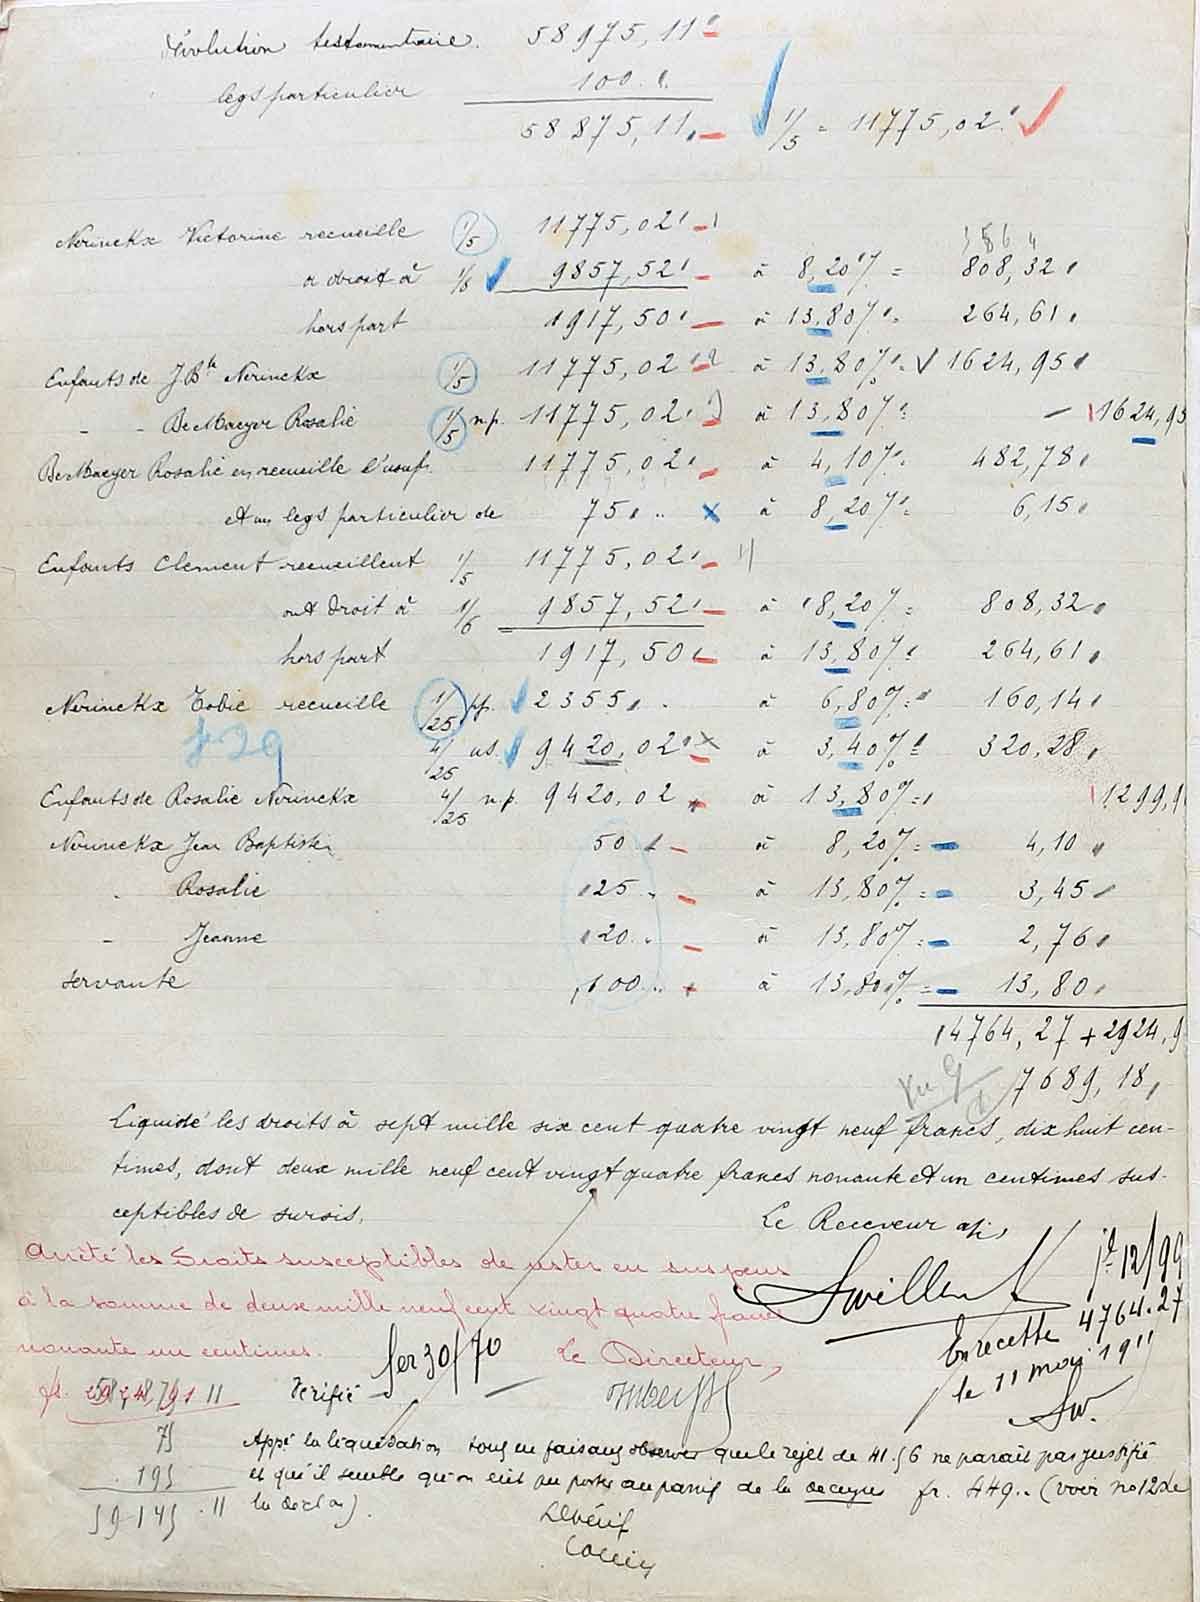 Dévolution testamentaire. 58975,11
legs particulier 100.
58875,11 1/5 = 11775,02
Nerinckx Victorine recueille 1/5 11775,02
a droit à 1/6 9857,52 à 8,20% = 808,32
hors part 1917,50 à 13,80% = 264,61
Enfants de J.Bte Nerinckx 1/5 11775,02 à 13,80% = 1624,95
- - De Maeyer Rosalie 1/5 n.p. 11775,02 à 13,80% = - 1624,95
De Maeyer Rosalie en recueille l'usuf. 11775,02 à 4,10% = 482,78
et un legs particulier de 75,.. à 8,20% = 6,15
Enfants Clement recueillent 1/5 11775,02
ont droit à 1/6 9857,52 à 8,20% = 808,32
hors part 1917,50 à 13,80% = 264,61
Nerinckx Tobie recueille 1/25 pp. 2355,.. à 6,80% = 160,14
29 4/25 us. 9420,02 à 3,40% = 320,28
Enfants de Rosalie Nerinckx 4/25 n.p. 9420,02 à 13,80% = 1299,9
Nerinckx Jean Baptiste 50 à 8,20% = 4,10
- Rosalie 25.. à 13,80% = 3,45
- Jeanne 20.. à 13,80% = 2,76
servante 100.. à 13,80% = 13,80
4764,27 + 2924,9
7689,18
Liquidé les droits à sept mille six cent quatre vingt neuf francs, dix huit cen-
times, dont deux mille neuf cent vingt quatre francs nonante et un centimes sus-
ceptibles de sursis.
Le Receveur
Arrêté les Droits susceptibles de rester en suspens
à la somme de deux mille neuf cent vingt quatre francs
nonante un centimes.
Le Directeur,
12/99
En recette 4764.27
le 11 mai 1911
Sw.
Vérifié
75
195
59145.11
App. la liquidation tout en faisant observer que le rejet de 41.56 ne paraît pas justifié
et qu'il semble qu'on eût pu porter au passif de la fr. 449.. (voir no 12 de
la décl.on).